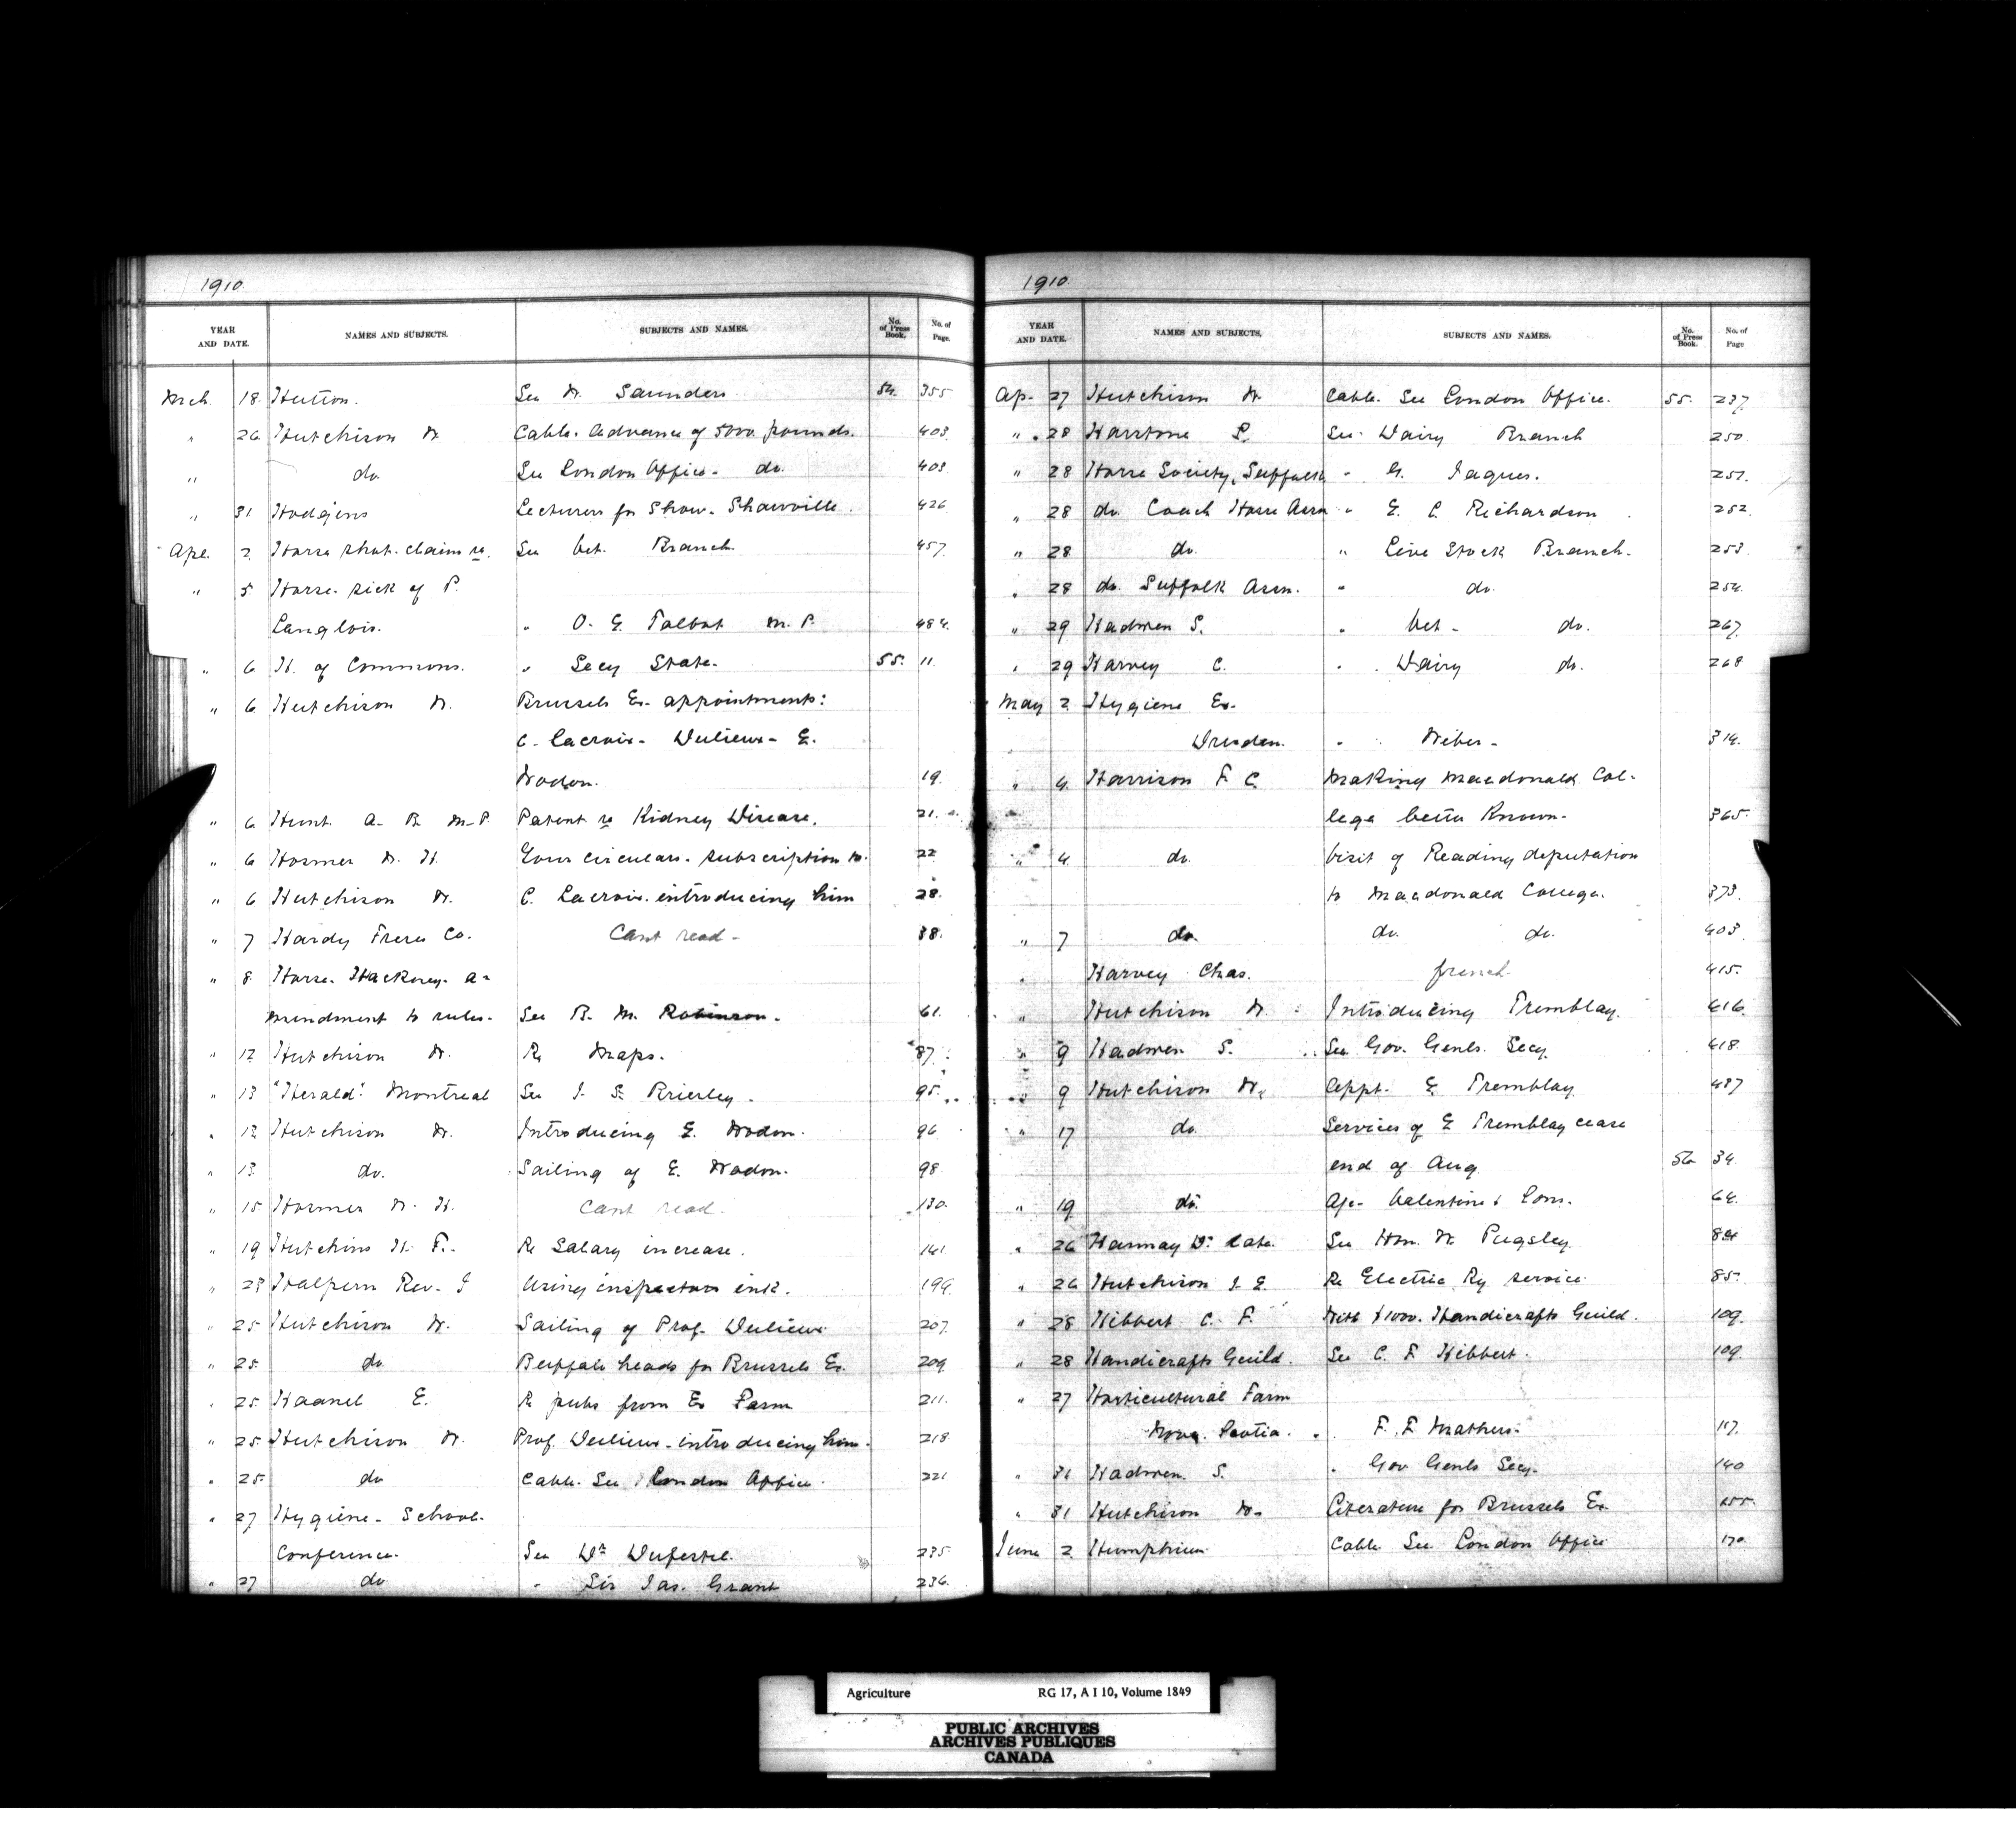 1910.
YEAR AND DATE. NAMES AND SUBJECTS. SUBJECTS AND NAMES. No. of Press Book. No. of Page.
Mch 18 Hutton. See W. Saunders 54. 355
" 26 Hutchison W. Cable. Advance of 5000 pounds. 403
" do. See London Office - do. 403
" 31 Hodgins Lecturers for Show. Shawville. 426
Apl. 2 Horse shot. claim re. See Vet. Branch. 457
" 5 Horse. sick of P.
Langlois. " O. E. Talbot M.P. 484.
" 6 H. of Commons. " Secy State. 55. 11.
" 6 Hutchison W. Brussels Ex. appointments:
C. Lacroix - Dulieux - E.
Nodon. 19.
" 6 Hunt. A. B. M.P. Patent re Kidney Disease. 21.
" 6 Hormer W. H. Your circulars. subscription to. 22
" 6 Hutchison W. C. Lacroix. introducing him 28.
" 7 Hardy Freres Co. Cant read - 38.
" 8 Horse. Hackney. a-
mendment to rules. See B. M. Robinson. 61.
" 12 Hutchison W. Re Maps. 87.
" 13 "Herald" Montreal See J. S. Brierley. 95.
" 12 Hutchison W. Introducing E. Nodon. 96
" 13 do. Sailing of E. Nodon. 98
" 15 Hormer W. H. Cant read. 130.
" 19 Hutchins H. F. Re Salary increase. 141
" 23 Halpern Rev. J Using inspectors ink. 199.
" 25 Hutchison W. Sailing of Prof. Dulieux 207.
" 25 do. Buffalo heads for Brussels Ex. 209.
" 25 Haanel E. Re pubs from Ex Farm 211.
" 25 Hutchison W. Prof. Dulieux - introducing him. 218
" 25 do Cable. See London Office. 221
" 27 Hygiene - School.
Conference. See Dr 235.
" 27 do " Sir Jas. Grant 236.
1910.
YEAR AND DATE. NAMES AND SUBJECTS. SUBJECTS AND NAMES. No. of Press Book. No. of Page
Ap. 27 Hutchison W Cable. See London Office. 55. 237.
" 28 Harstone L. See Dairy Branch 250.
" 28 Horse Society, Suffolk " G. Jaques. 251.
" 28 do. Coach Horse Assn " E. C. Richardson 252.
" 28 do. " Live Stock Branch. 253.
" 28 do. Suffolk Assn. " do. 254.
" 29 Hadwen S. " Vet - do. 267.
" 29 Harvey C. " Dairy do. 268
May 2 Hygiene Ex.
Dresden. " Weber - 314.
" 4 Harrison F. C. Making Macdonald Col-
lege better known - 365.
" 4 do. Visit of Reading deputation
to Macdonald College. 373.
" 7 do. do. do. 403
" Harvey Chas. french 415.
" Hutchison W. Introducing Tremblay. 416.
" 9 Hadwen S. See Gov. Genls. Secy. 418.
" 9 Hutchison W. Appt. E Tremblay 437
" 17 do. Services of E Tremblay cease
end of Aug. 56 34.
" 19 do. A/c. Valentine & Sons. 64.
" 26 Hannay Dr. late. See Hon. W. Pugsley. 84
" 26 Hutchison J. E. Re Electric Ry service 85.
" 28 Hibbert C. F. With $1000. Handicrafts Guild. 109.
" 28 Handicrafts Guild. See C. F Hibbert. 109.
" 27 Horticultural Farm
Nova Scotia. " F. F Mathers. 117.
" 31 Hadwen. S. " Gov Genls Secy. 140
" 31 Hutchison W. Literature for Brussels Ex. 155.
June 2 Humphries. Cable See London Office 170.
Agriculture RG 17, A I 10, Volume 1849
PUBLIC ARCHIVES
ARCHIVES PUBLIQUES
CANADA